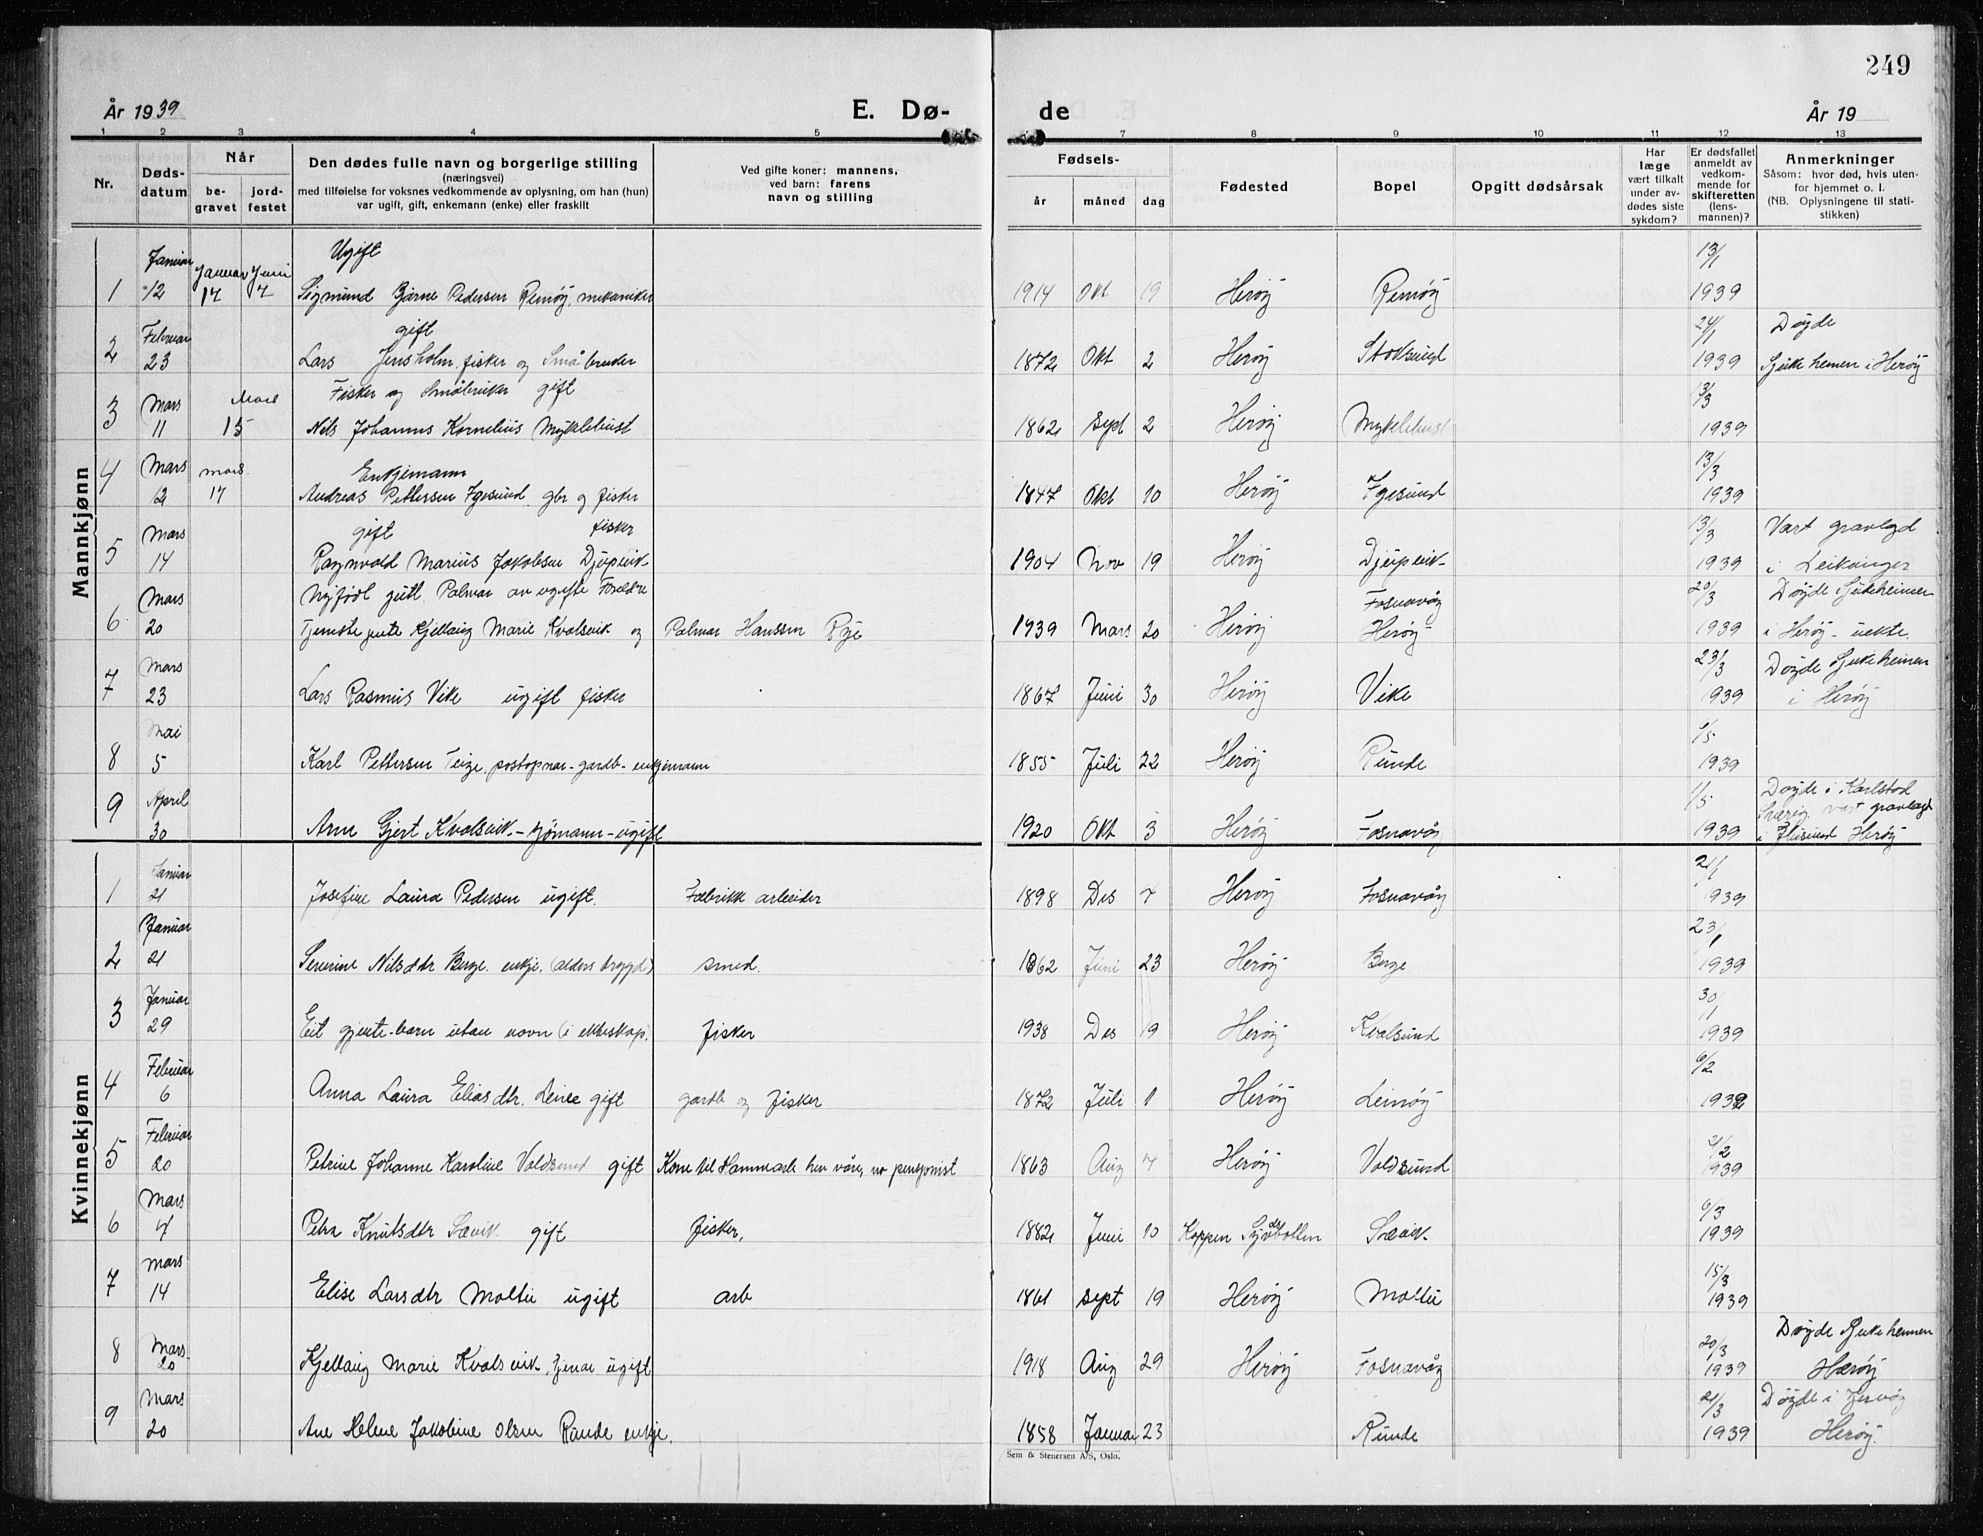 249
År 1939
E. Dø-
de
År 19
1 2 3 4 5 7 8 9 10 11 12 13
Nr.
Døds-
datum
Når
be-
gravet
jord-
festet
Den dødes fulle navn og borgerlige stilling
(næringsvei)
med tilføielse for voksnes vedkommende av oplysning, om han (hun)
var ugift, gift, enkemann (enke) eller fraskilt
Ved gifte koner: mannens,
ved barn: farens
navn og stilling
Fødsels-
år måned dag
Fødested
Bopel
Opgitt dødsårsak
Har
læge
vært tilkalt
under av-
dødes siste
sykdom?
Er dødsfallet
anmeldt av
vedkom-
mende for
skifteretten
(lens-
mannen)?
Anmerkninger
Såsom: hvor død, hvis uten-
for hjemmet o. l.
(NB. Oplysningene til stati-
stikken)
Mannkjønn
Januar Januar Juni Ugift 13/1
1 12 17 7 Sigmund Bjarne Pedersen Remøy, mekaniker 1914 Okt 19 Herøy Remøy 1939
Februar gift 24/1 Døyde
2 23 Lars Jensholm fisker og Småbruker 1872 Okt 2 Herøy 1939 Sjukeheimen i Herøy
Mars Mars Fisker og Småbruker gift 13/3
3 11 15 Nils Johannes Kornelius Myklebust 1862 Sept 2 Herøy Myklebust 1939
Mars mars Enkjemann 13/3
4 12 17 Andreas Pettersen Igesund gbr og fisker 1847 Okt 10 Herøy Igesund 1939
Mars gift fisker 13/3 Vart gravlagd
5 14 Ragnvald Marius Jakobsen Djupvik 1904 Nov 19 Herøy Djupvik 1939 i Leikanger
Mars Nyfødt gutt Palmar av ugifte Foreldre Fosnavåg 20/3 Døyde Sjukeheimen
6 20 Tjenste jente Kjellaug Marie Kvalsvik og Palmar Hanssen Rye 1939 Mars 20 Herøy Herøy 1939 i Herøy - uekte.
Mars 23/3 Døyde Sjukeheimen
7 23 Lars Rasmus Vike ugift fisker 1867 Juni 30 Herøy Vike 1939 i Herøy
Mai /5
8 5 Karl Pettersen postopnar - gardb - enkjemann 1855 Juli 22 Herøy Runde 1939
April 1/5 Døyde i Karlstad
9 30 Arne Gjert Kvalsvik - sjømann - ugift 1920 Okt 3 Herøy Fosnavåg 1939 Sverig vart gravlagt
i Herøy
Kvinnekjønn
Januar 21/1
1 21 Josefine Laura Pedersen ugift. Fabrikk arbeider 1898 Des 7 Herøy Fosnavåg 1939
Januar 23/1
2 21 Severine Nilsdtr Berge. enkje. (alders trygd) smed. 1862 Juni 23 Herøy Berge 1939
Januar 30/1
3 29 Eit gjente-barn utan navn (i ekteskap) fisker 1938 Des 19 Herøy Kvalsund 1939
Februar 6/2
4 6 Anna Laura Eliasdtr. Leine gift gardb og fisker 1872 Juli 1 Herøy Leinøy 1939
Februar 21/2
5 20 Petrine Johanne Karoline Voldsund gift Kone til 1863 Aug 7 Herøy Voldsund 1939
Mars 6/3
6 4 Petra Knutsdtr Sævik gift fisker, 1882 Juni 10 Koppen Sævik 1939
Mars 15/3
7 14 Elise Larsdtr Moltu ugift arb 1861 sept 19 Herøy Moltu 1939
Mars 20/3 Døyde Sjukeheimen
8 20 Kjellaug Marie Kvalsvik, tjenar ugift 1918 Aug 29 Herøy Fosnavåg 1939 Herøy
Mars 21/3 Døyde i
9 20 Ane Helene Jakobine Olsen Runde enkje. 1858 Januar 23 Runde 1939 Herøy.
Sem & Stenersen A/S, Oslo.